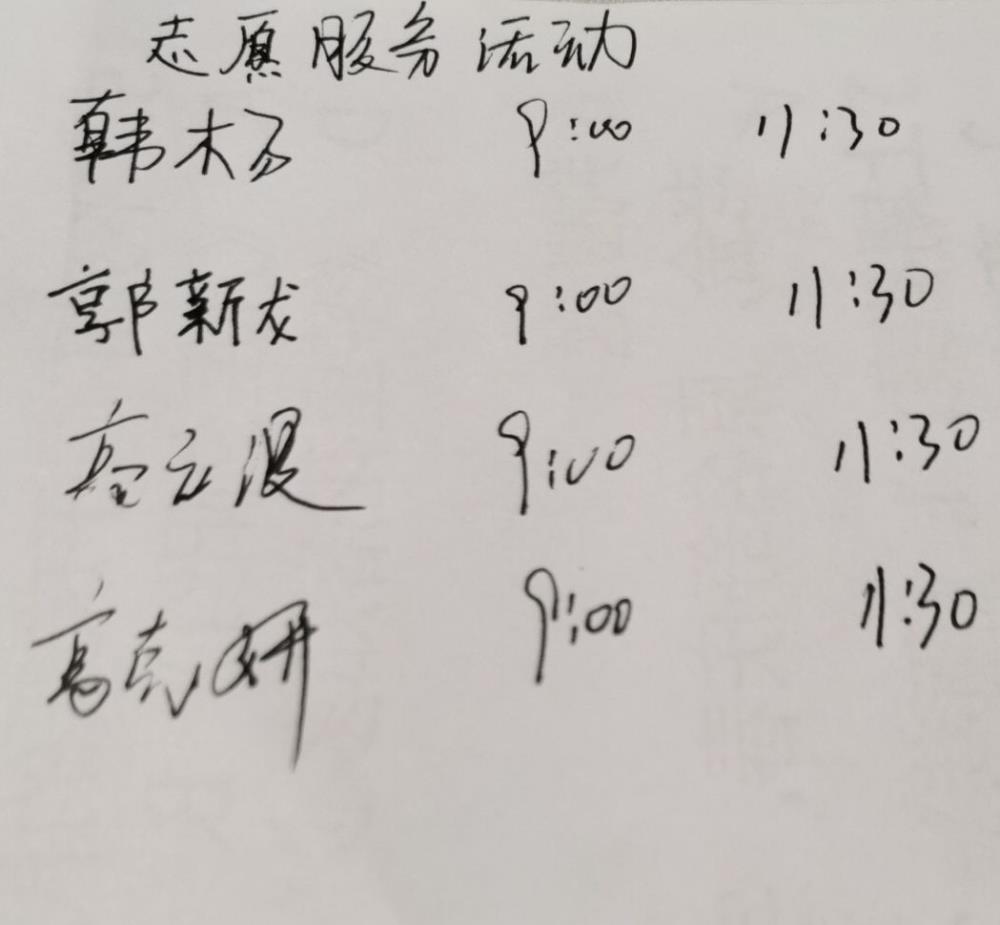 志愿服务活动
韩木易 9:00 11:30
郭新龙 9:00 11:30
高云浸 9:00 11:30
高克妍 9:00 11:30